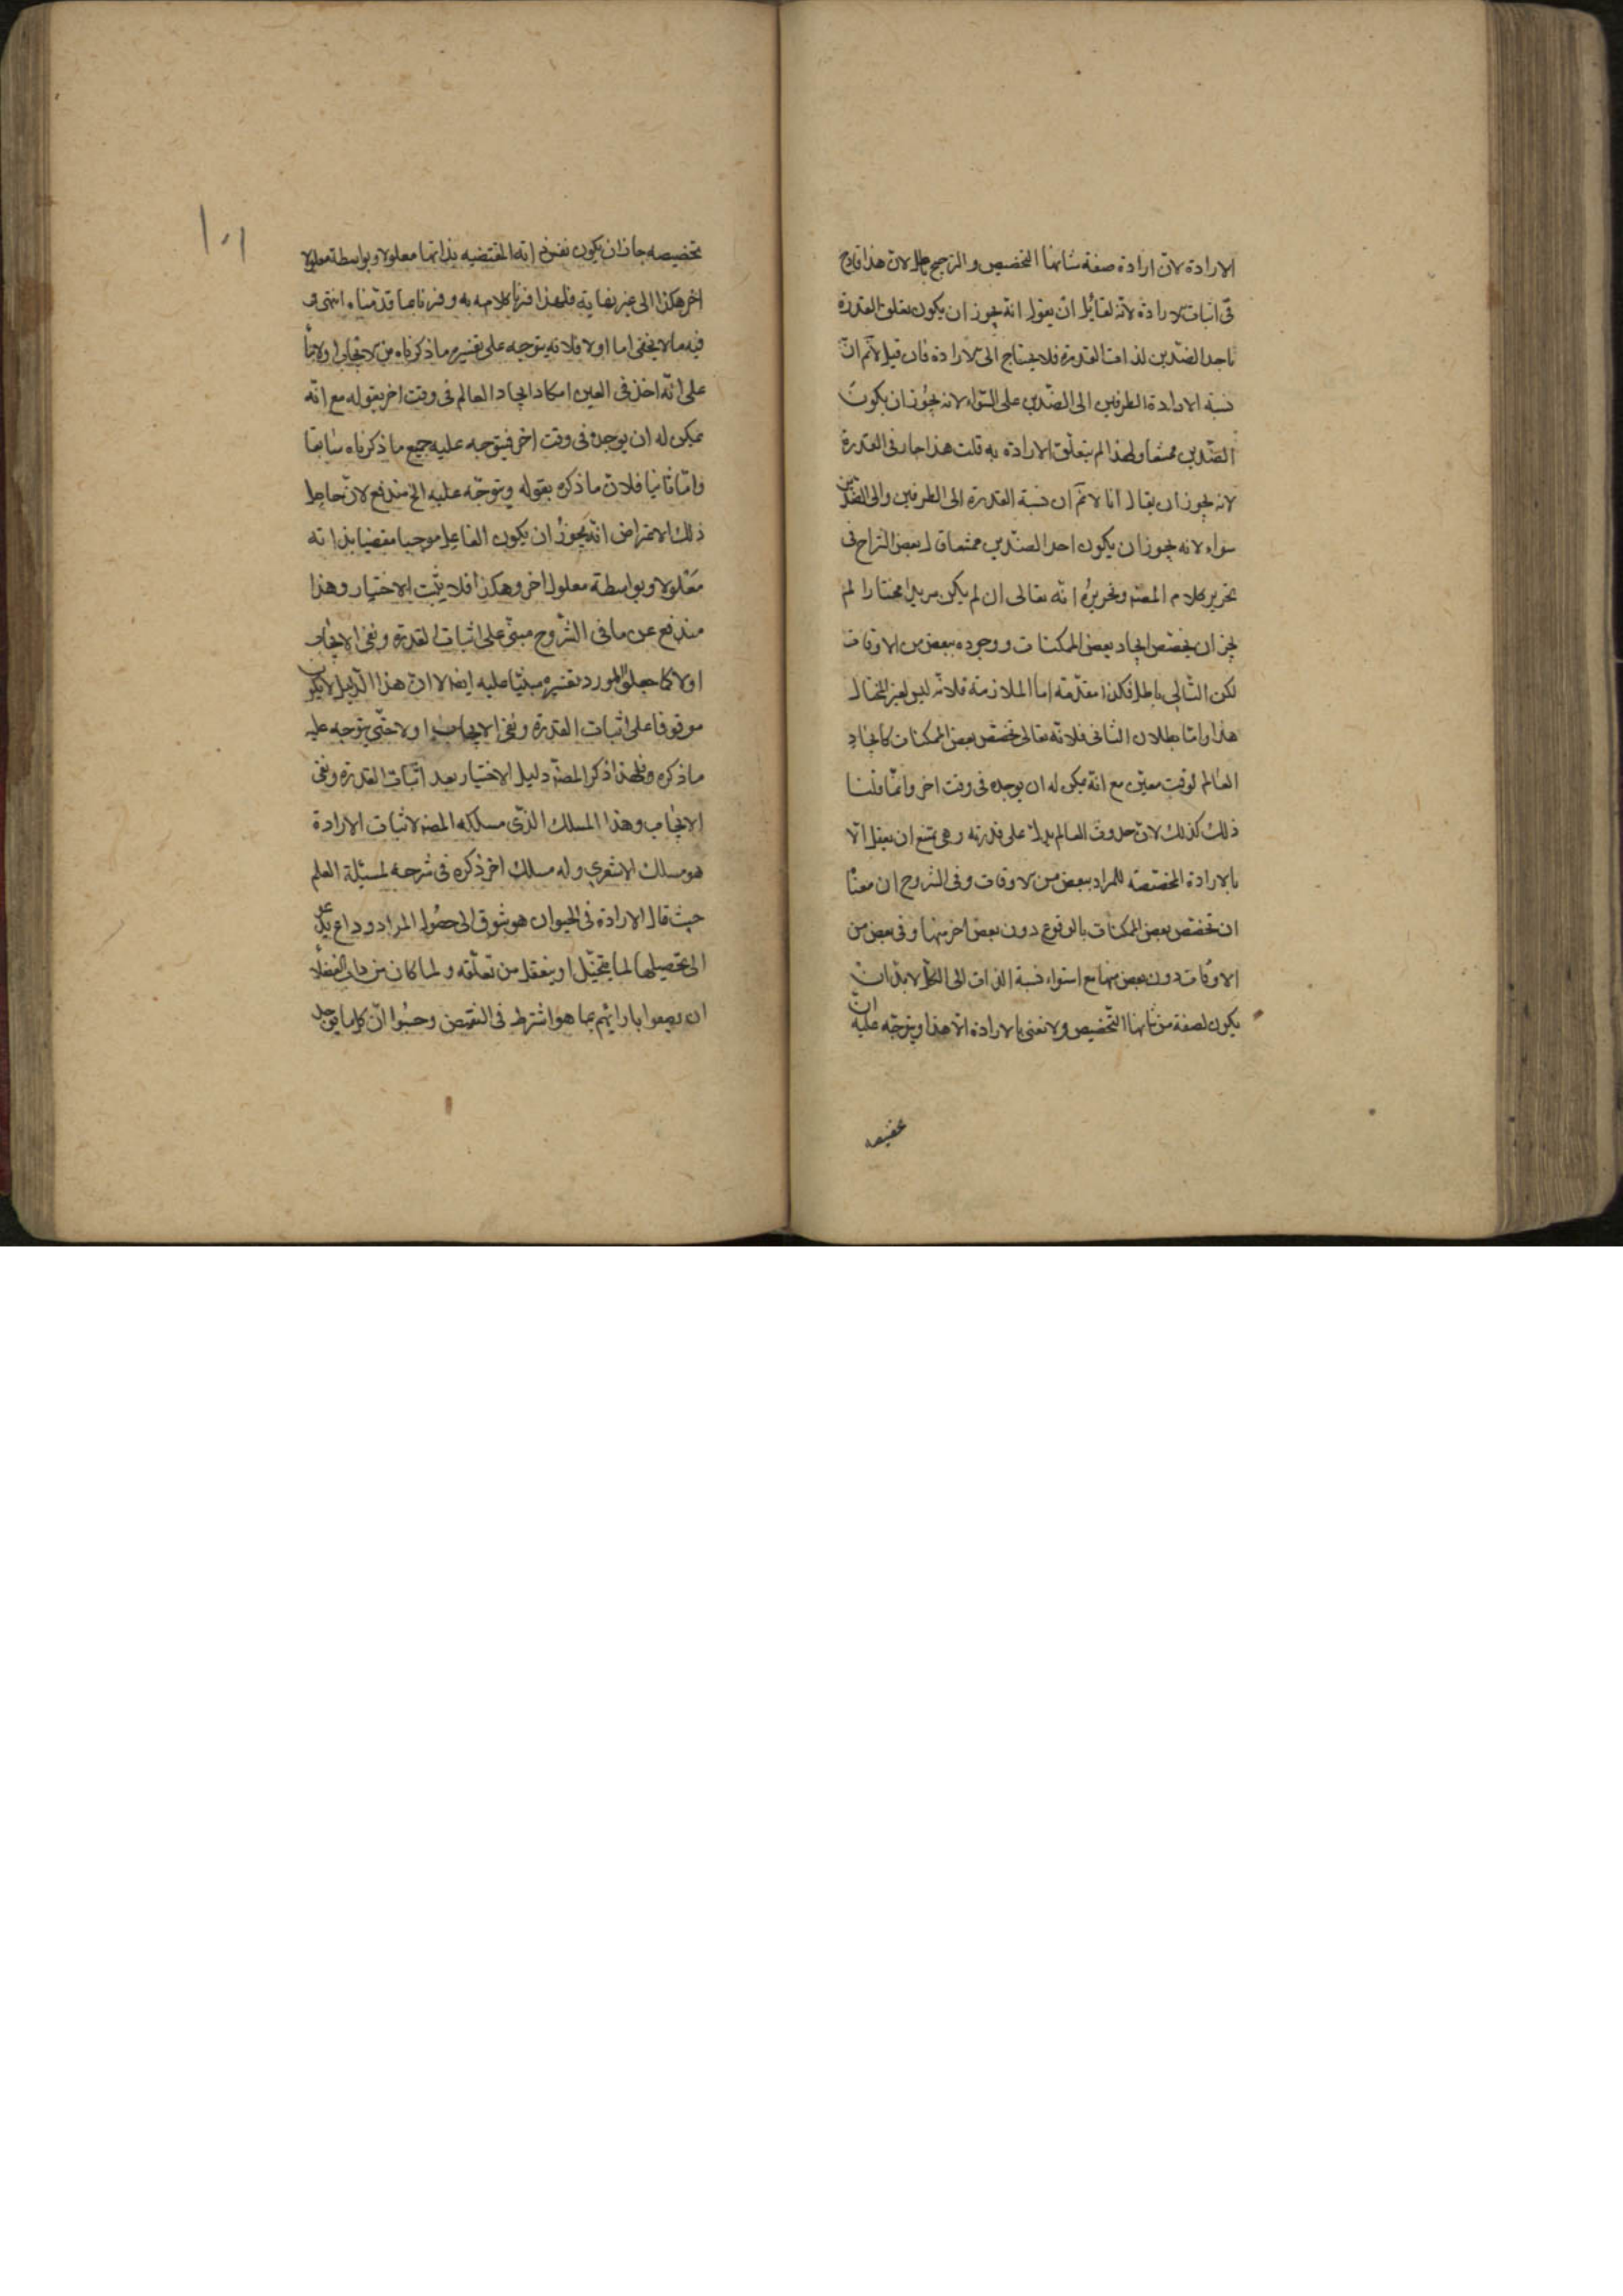 الارادة لان ارادة صفة شانها التخصيص والترجيح باطل لان هذا قادح
فى اثبات الارادة لانه لقائل ان يقول انه يجوز ان يكون تعلق القدرة
باحد الضدين لذات القدرة فلا يحتاج الى الارادة فان قيل لانم ان
نسبة الارادة الطرفين الى الضدين على السواء لانه يجوز ان يكون
الضدين ممتنعا ولهذا لم يتعلق الارادة به قلت هذا جار فى القدرة
لانه يجوز ان يقال انا لانم ان نسبة القدرة الى الطرفين والى الضدين
سواء لانه يجوز ان يكون احد الضدين ممتنعا قال بعض الشراح فى
تحرير كلام المصنه وتحريره انه تعالى ان لم يكن مريدا مختارا لم
يجز ان يخصص ايجاد بعض الممكنات ووجوده ببعض من الاوقات
لكن التالى باطل فكذا مقدمه اما الملازمة فلانه ليس لغير المختار
هذا واما بطلان الثانى فلانه تعالى خصص بعض الممكنات كايجاد
العالم لوقت معين مع انه يمكن له ان يوجده فى وقت اخر وانما قلنا
ذلك كذلك لان حدوث العالم يدل على قدرته وهى يمتنع ان يعقل الا
بالارادة المخصصه للمراد ببعض من الاوقات وفى الشروح ان معنا
ان تخصص بعض الممكنات بالوقوع دون بعض اخر منها وفى بعض من
الاوقات دون بعض منها مع استواء نسبة الذات الى الكل لابد ان
يكون لصفة من شانها التخصيص ولا نعنى بالارادة الا هذا ويتوجه عليه ان
تخصيصه
تخصيصه جاز ان يكون نفس ذاته المقتضيه بذاتها معلولا وبواسطة معلولا
اخر هكذا الى غير نهاية فلهذا فزنا كلامه به وفزنا بما قدمناه انتهى و
فيه ما لا يخفى اما اولا فلانه يتوجه على تفسيره ما ذكرناه من الايجاب اولا بنا
على انه اخذ فى العين امكان ايجاد العالم فى وقت اخر بقوله مع انه
يمكن له ان يوجده فى وقت اخر فيتوجه عليه جميع ما ذكرناه سابقا
واما ثانيا فلان ما ذكره بقوله ويتوجه عليه الخ مندفع لان حاصل
ذلك الاعتراض انه يجوز ان يكون الفاعل موجبا مقتضيا بذاته
معلولا وبواسطة معلول اخر وهكذا فلا يثبت الاختيار وهذا
مندفع عن ما فى الشروح مبنى على اثبات القدرة ونفى الايجاب
اولا كما جعل المورد تفسيره مبنيا عليه ايضا لا ان هذا الدليل لا يكون
موقوفا على اثبات القدرة ونفى الايجاب اولا حتى يتوجه عليه
ما ذكره ولهذا ذكر المصنه دليل الاختيار بعد اثبات القدرة ونفى
الايجاب وهذا المسلك الذى مسلكه المصنه لاثبات الارادة
هو مسلك الاشعري وله مسلك اخر ذكره فى شرحه لمسئلة العلم
حيث قال الارادة فى الحيوان هو شوق الى حصول المراد وداع يدعو
الى تحصيلها لما يتخيل او يتعقل من تعلقه ولما كان من داب الفضلا
ان يصفوا بارائهم بما هو اشترط فى النقص وحسبوا ان كلما يوجد